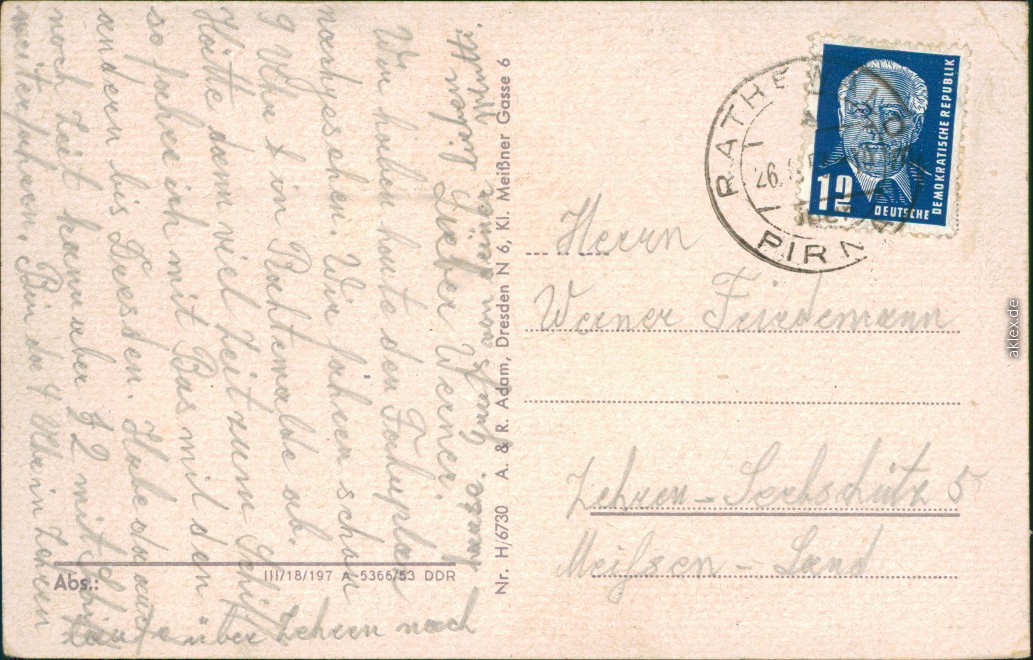 Lieber Werner.
Wir haben heute den Fahrplan
nachgesehen. Wir fahren schon
9 Uhr in Rathewalde ab.
Hätte dann viel Zeit zum Schiff
so fahre ich mit Bas mit den
andern bis Dresden. Habe da auch
noch Zeit kann aber 32 mit Schiff
weiterfahren. Bin da 4 Uhr in Zehren
laufe über Zehren nach
hause. Gruß von deiner lieben
Mutti.
Abs.:
III/18/197 A 5366/53 DDR
Nr. H/6730 A. & R. Adam, Dresden N 6, Kl. Meißner Gasse 6
RATHEW
PIRN
26.
12
DEUTSCHE
DEMOKRATISCHE REPUBLIK
Herrn
Werner Friedemann
Zehren – Seebschütz 5
Meißen – Land
aklex.de